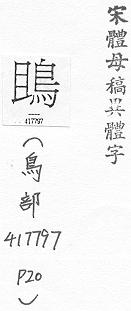 宋體母稿異體字
417797
(鳥部
417797
P20)